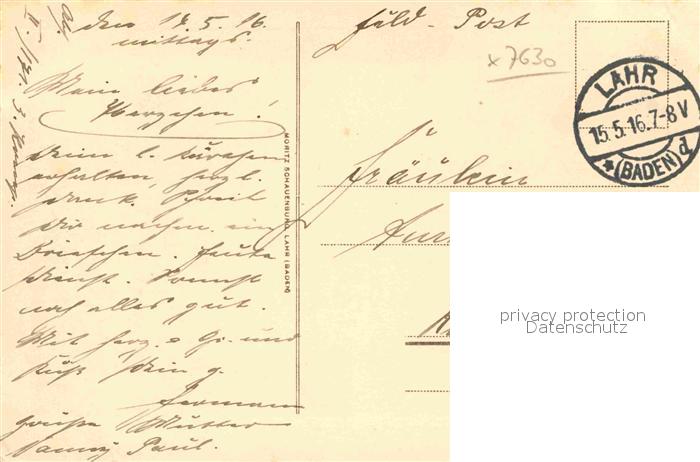 den 14.5.16.
mittags.
Mein liebes
Herzchen!
Dein l. Kärtchen
erhalten herzl.
Dank.
Dir nachen ein
Briefchen. Heute
Dienst. Sonnst
noch alles gut.
Mit herz. Gr. und
Kuß Dein g.
Hermann
Grüße Mutter
Paul.
MORITZ SCHAUENBURG, LAHR (BADEN)
Feld-Post
x7630
LAHR
15.5.16.7-8V
*(BADEN)d
Fräulein
privacy protection
Datenschutz